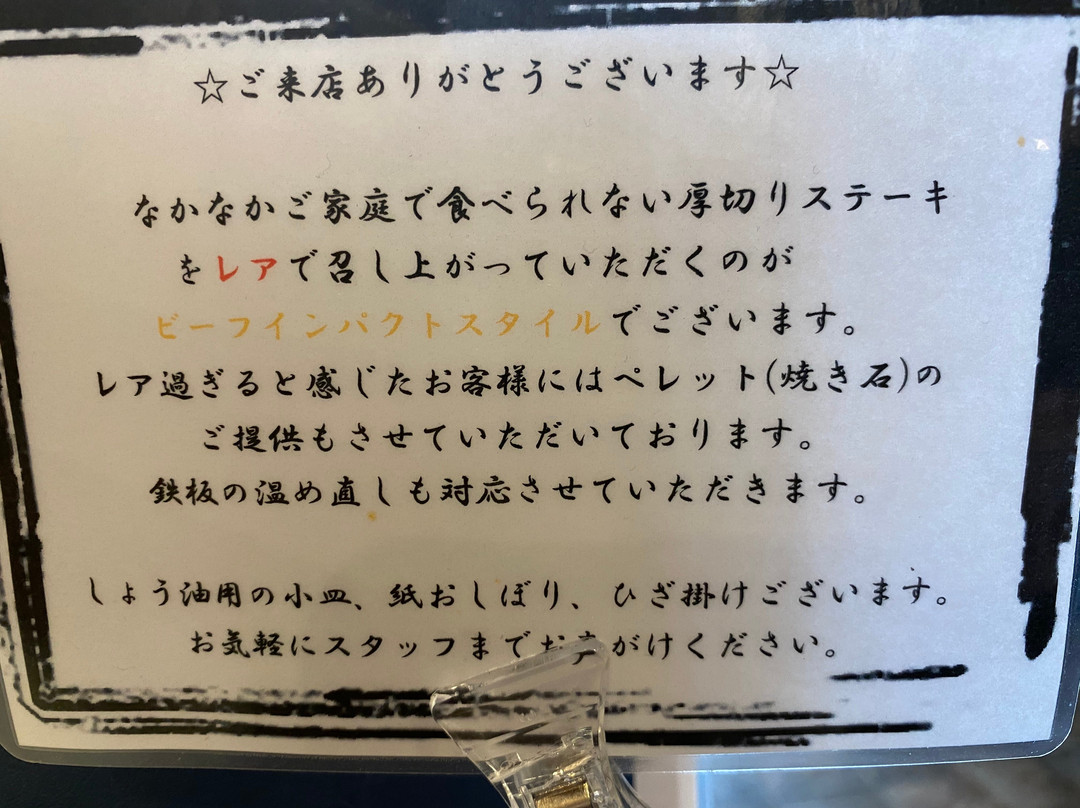 ☆ご来店ありがとうございます☆
なかなかご家庭で食べられない厚切りステーキ
をレアで召し上がっていただくのが
ビーフインパクトスタイルでございます。
レア過ぎると感じたお客様にはペレット(焼き石)の
ご提供もさせていただいております。
鉄板の温め直しも対応させていただきます。
しょう油用の小皿、紙おしぼり、ひざ掛けございます。
お気軽にスタッフまでお声がけください。